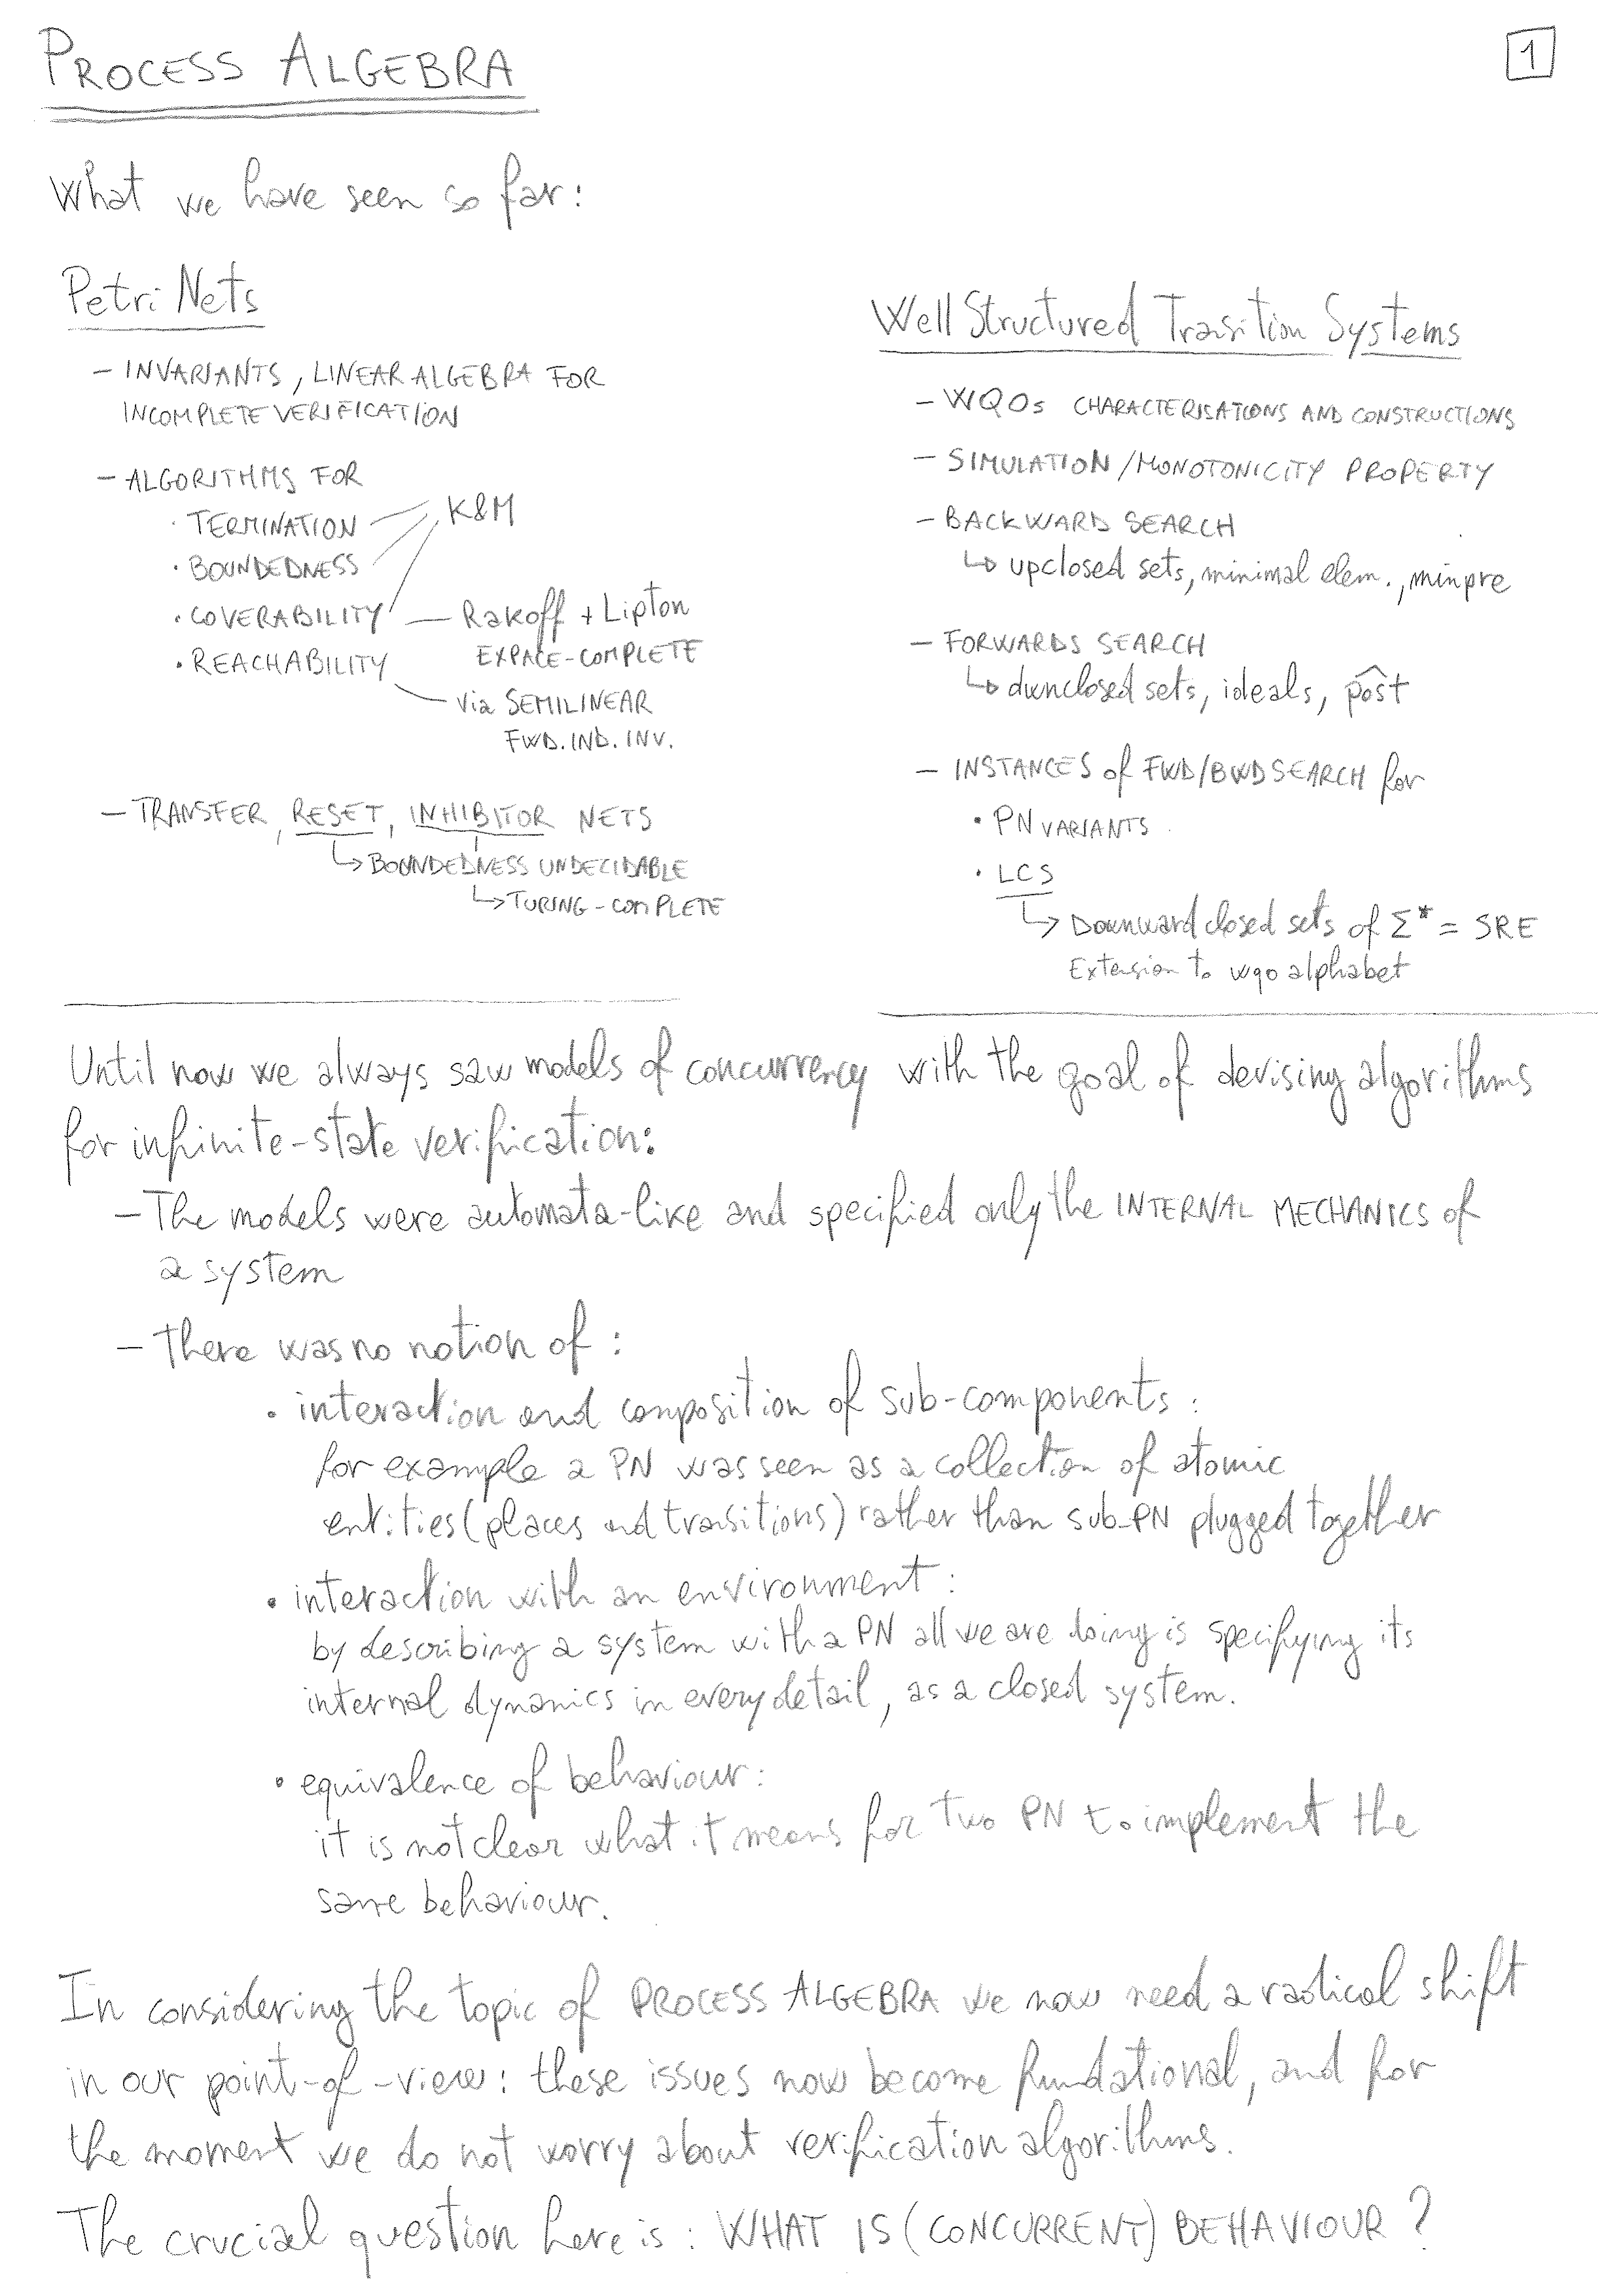 PROCESS ALGEBRA
1
What we have seen so far:
Petri Nets
- INVARIANTS, LINEAR ALGEBRA FOR
INCOMPLETE VERIFICATION
- ALGORITHMS FOR
· TERMINATION
K&M
· BOUNDEDNESS
· COVERABILITY — Rakoff + Lipton
EXPACE-COMPLETE
· REACHABILITY
via SEMILINEAR
FWD. IND. INV.
- TRANSFER, RESET, INHIBITOR NETS
↳ BOUNDEDNESS UNDECIDABLE
↳ TURING-COMPLETE
Well Structured Transition Systems
- WQOs CHARACTERISATIONS AND CONSTRUCTIONS
- SIMULATION/MONOTONICITY PROPERTY
- BACKWARD SEARCH
↳ upclosed sets, minimal elem., minpre
- FORWARDS SEARCH
↳ dwnclosed sets, ideals, p̂ost
- INSTANCES of FWD/BWD SEARCH for
· PN VARIANTS
· LCS
↳ Downward closed sets of Σ* = SRE
Extension to wqo alphabet
Until now we always saw models of concurrency with the goal of devising algorithms
for infinite-state verification:
- The models were automata-like and specified only the INTERNAL MECHANICS of
a system
- There was no notion of:
· interaction and composition of sub-components:
for example a PN was seen as a collection of atomic
entities (places and transitions) rather than sub-PN plugged together
· interaction with an environment:
by describing a system with a PN all we are doing is specifying its
internal dynamics in every detail, as a closed system.
· equivalence of behaviour:
it is not clear what it means for two PN to implement the
same behaviour.
In considering the topic of PROCESS ALGEBRA we now need a radical shift
in our point-of-view: these issues now become fundational, and for
the moment we do not worry about verification algorithms.
The crucial question here is: WHAT IS (CONCURRENT) BEHAVIOUR?